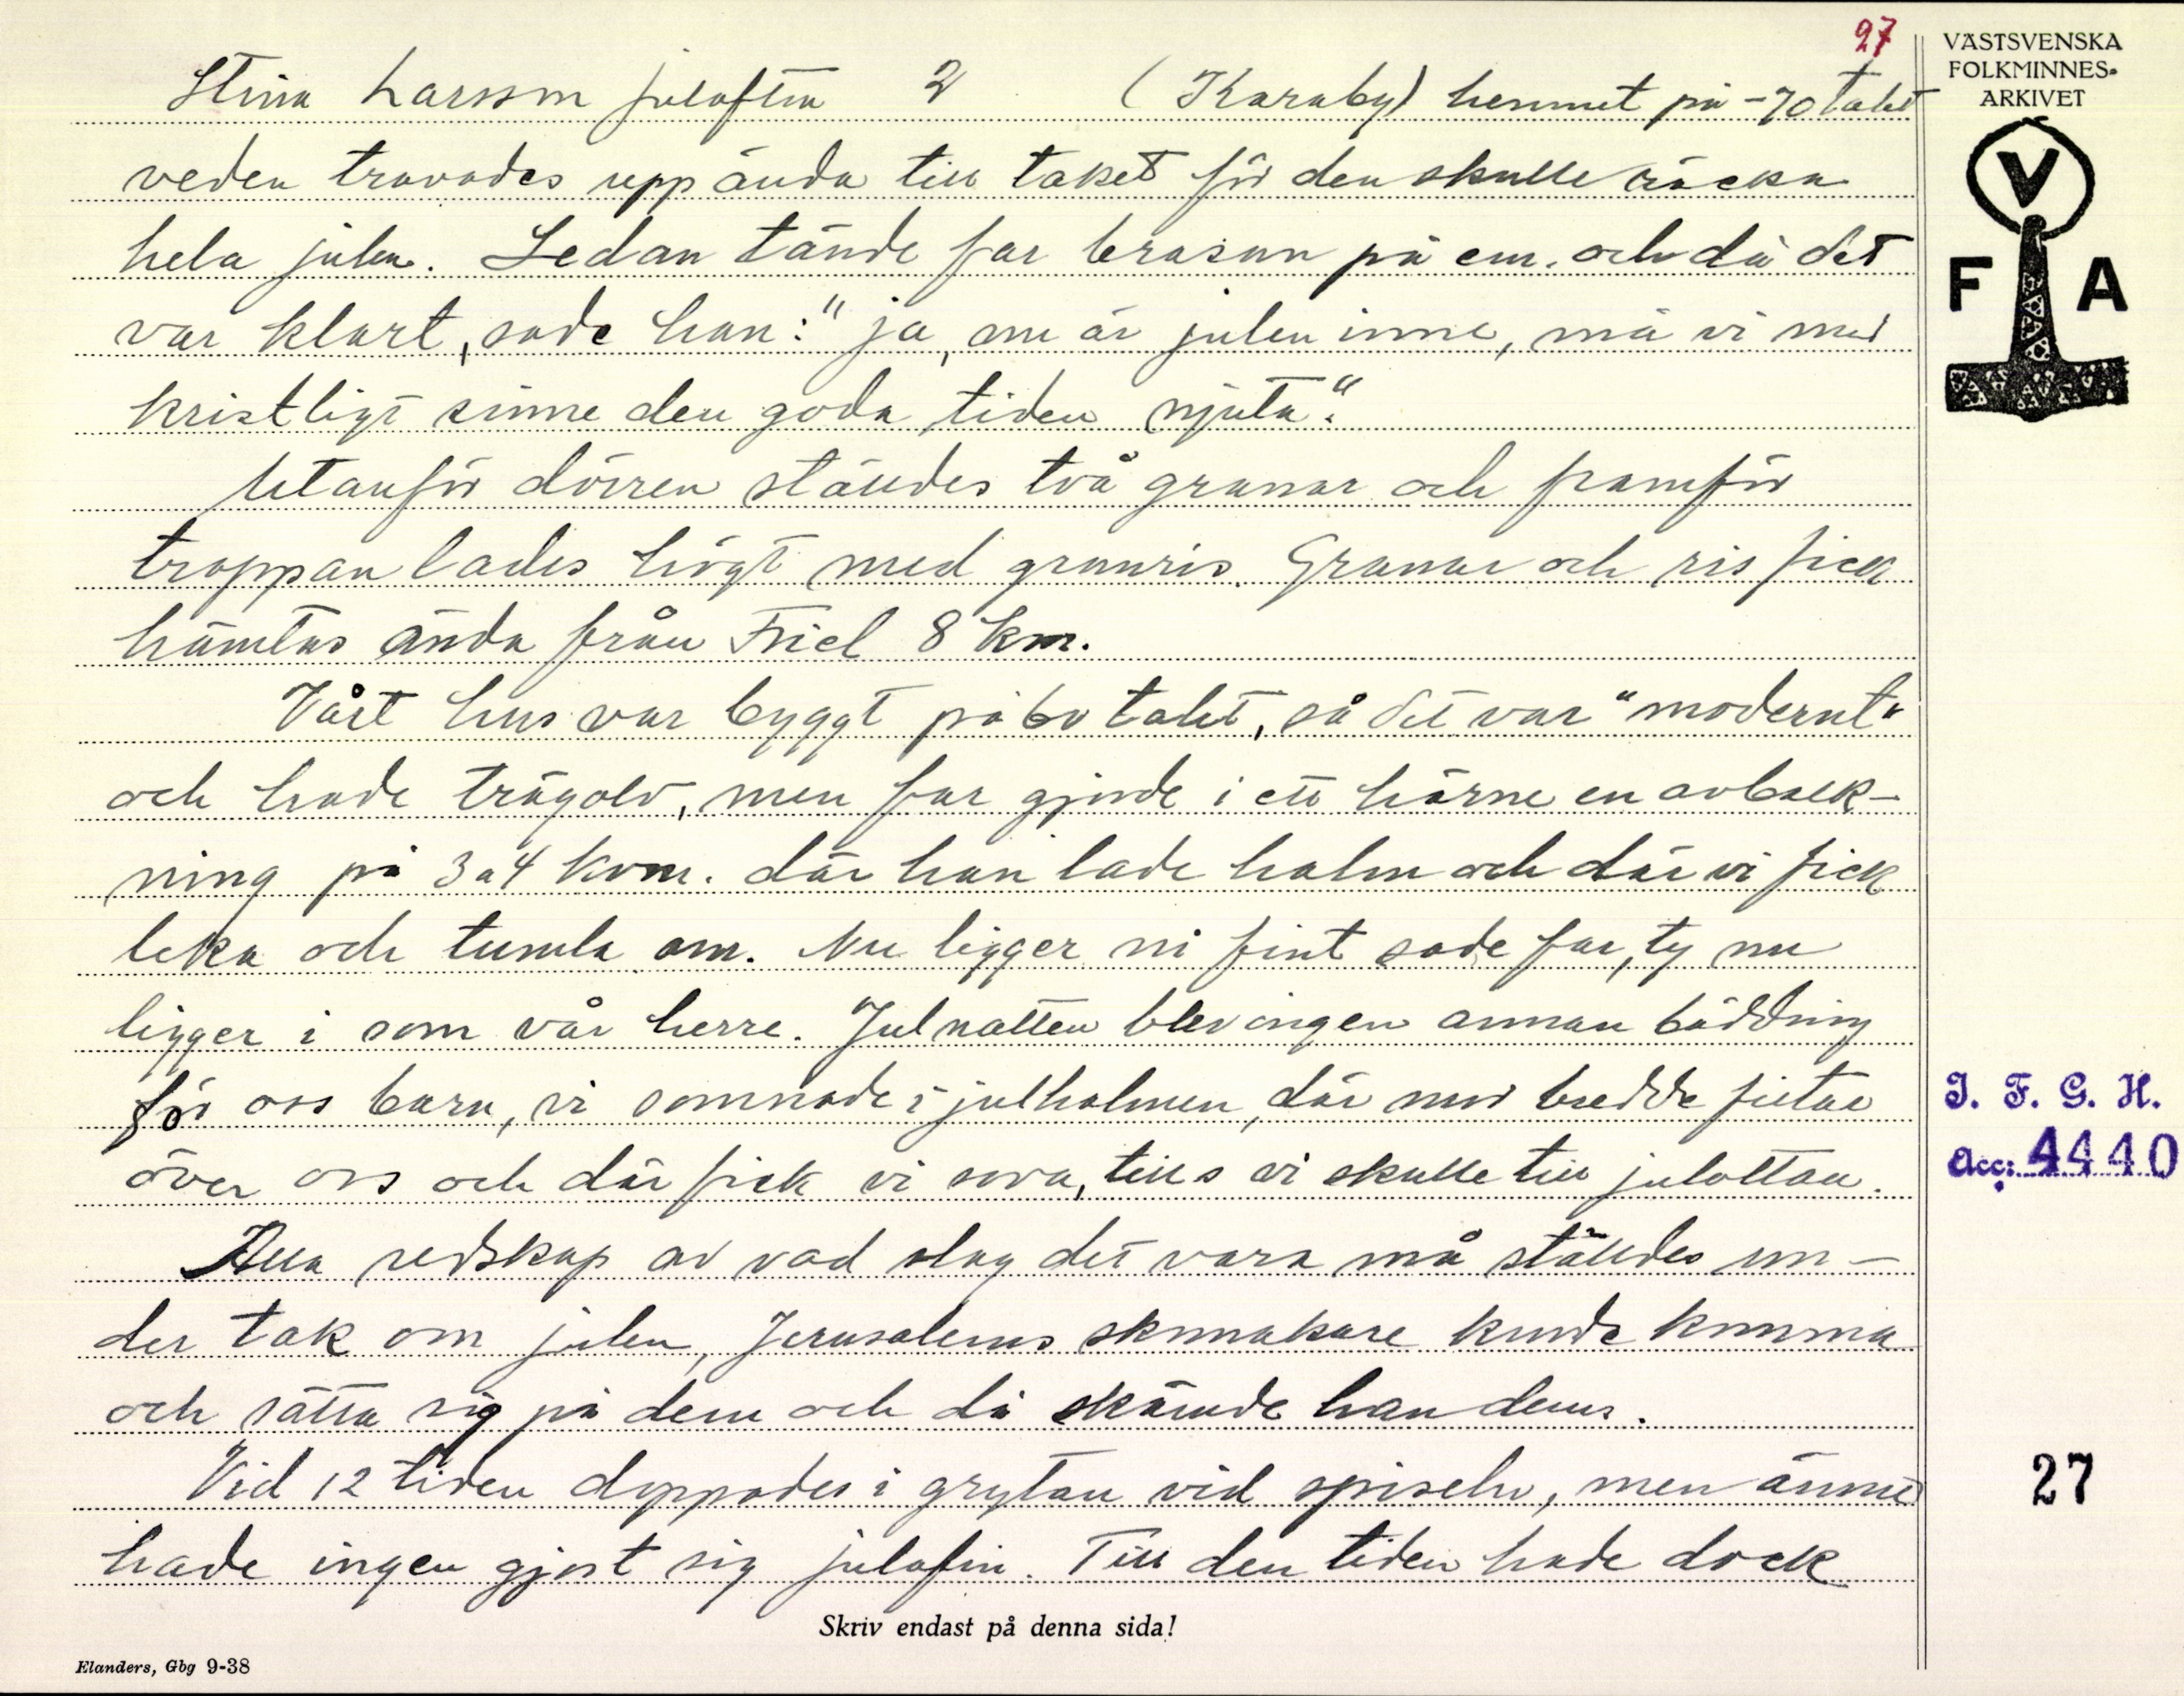 27
Stina Larsson julafton 2 (Karaby) hemmet på -70 talet
veden travades upp ända till taket för den skulle räcka
hela julen. Sedan tände far brasan på em. och då det
var klart, sade han: "ja, nu är julen inne, må vi med
kristligt sinne den goda tiden njuta".
Utanför dörren ställdes två granar och framför
trappan lades högt med granris. Granar och ris fick
hämtas ända från Friel 8 km.
Vårt hus var byggt på 60 talet, så det var "modernt"
och hade trägolv, men far gjorde i ett hörne en avbalk-
ning på 3 a 4 kvm. där han lade halm och där vi fick
leka och tumla om. Nu ligger ni fint sade far, ty nu
ligger i som vår herre. Julnatten blev ingen annan bäddning
för oss barn, vi somnade i julhalmen, där mor bredde filtar
över oss och där fick vi sova, tills vi skulle till julottan.
Alla redskap av vad slag det vara må ställdes un-
der tak om julen, Jerusalems skomakare kunde komma
och sätta sig på dem och då skämde han dem.
Vid 12 tiden doppades i grytan vid spiseln, men ännu
hade ingen gjort sig julafin. Till den tiden hade dock
Skriv endast på denna sida!
Elanders, Gbg 9-38
VÄSTSVENSKA
FOLKMINNES-
ARKIVET
V
F A
I. F. G. H.
Acc: 4440
27